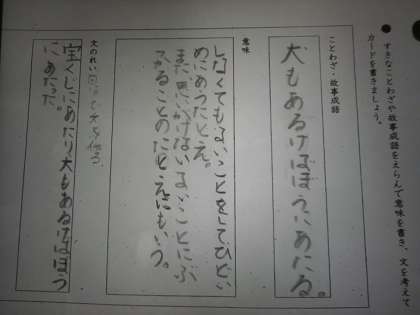 ●すきなことわざや故事成語をえらんで意味を書き、文を考えて
カードを書きましょう。
ことわざ・故事成語
犬もあるけばぼうにあたる。
意味
しなくてもよいことをしてひどい
めにあうたとえ。
また思いがけないよいことにぶ
つかることのたとえにもいう。
文のれい
宝くじにあたり犬もあるけばぼう
にあたった。